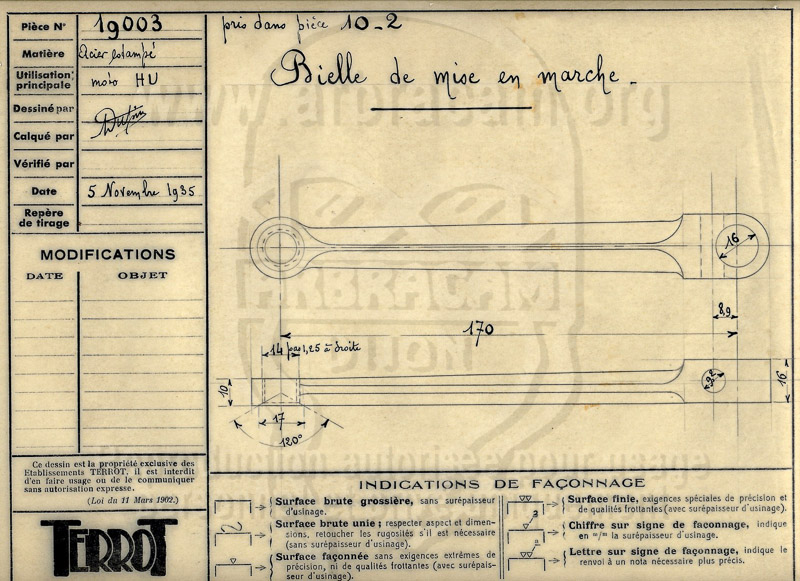 Pièce N° 19003
Matière Acier estampé
Utilisation principale moto HU
Dessiné par
Calqué par
Vérifié par
Date 5 Novembre 1935
Repère de tirage
MODIFICATIONS
DATE OBJET
Ce dessin est la propriété exclusive des
Etablissements TERROT, il est interdit
d'en faire usage ou de le communiquer
sans autorisation expresse.
(Loi du 11 Mars 1902.)
TERROT
pris dans pièce 10-2
Bielle de mise en marche.
16
8,9
170
14 pas 1,25 à droite
10
17
120°
16
INDICATIONS DE FAÇONNAGE
Surface brute grossière, sans surépaisseur
d'usinage.
Surface brute unie; respecter aspect et dimen-
sions, retoucher les rugosités s'il est nécessaire
(sans surépaisseur d'usinage).
Surface façonnée sans exigences extrêmes de
précision, ni de qualités frottantes (avec surépais-
seur d'usinage).
Surface finie, exigences spéciales de précision et
de qualités frottantes (avec surépaisseur d'usinage).
2
Chiffre sur signe de faconnage, indique
en m/m la surépaisseur d'usinage.
a
Lettre sur signe de façonnage, indique le
renvoi à un nota nécessaire plus précis.
www.arbracam.org
ARBRAGAM
UNION